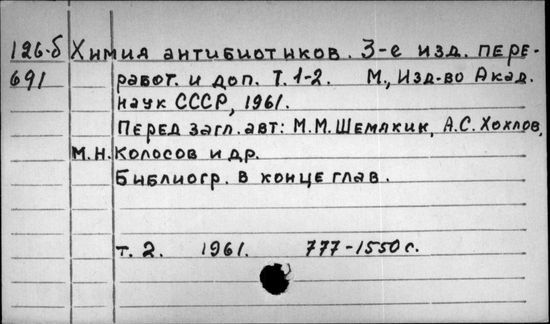 126-б Химия антибиотиков. 3-е изд. пере-
691 работ. и доп. Т. 1-2. М., Изд-во Акад.
наук СССР, 1961.
Перед загл. авт: М.М. Шемякин, А.С. Хохлов,
М.Н. Колосов и др.
Библиогр. в конце глав.
т. 2. 1961. 777-1550 с.